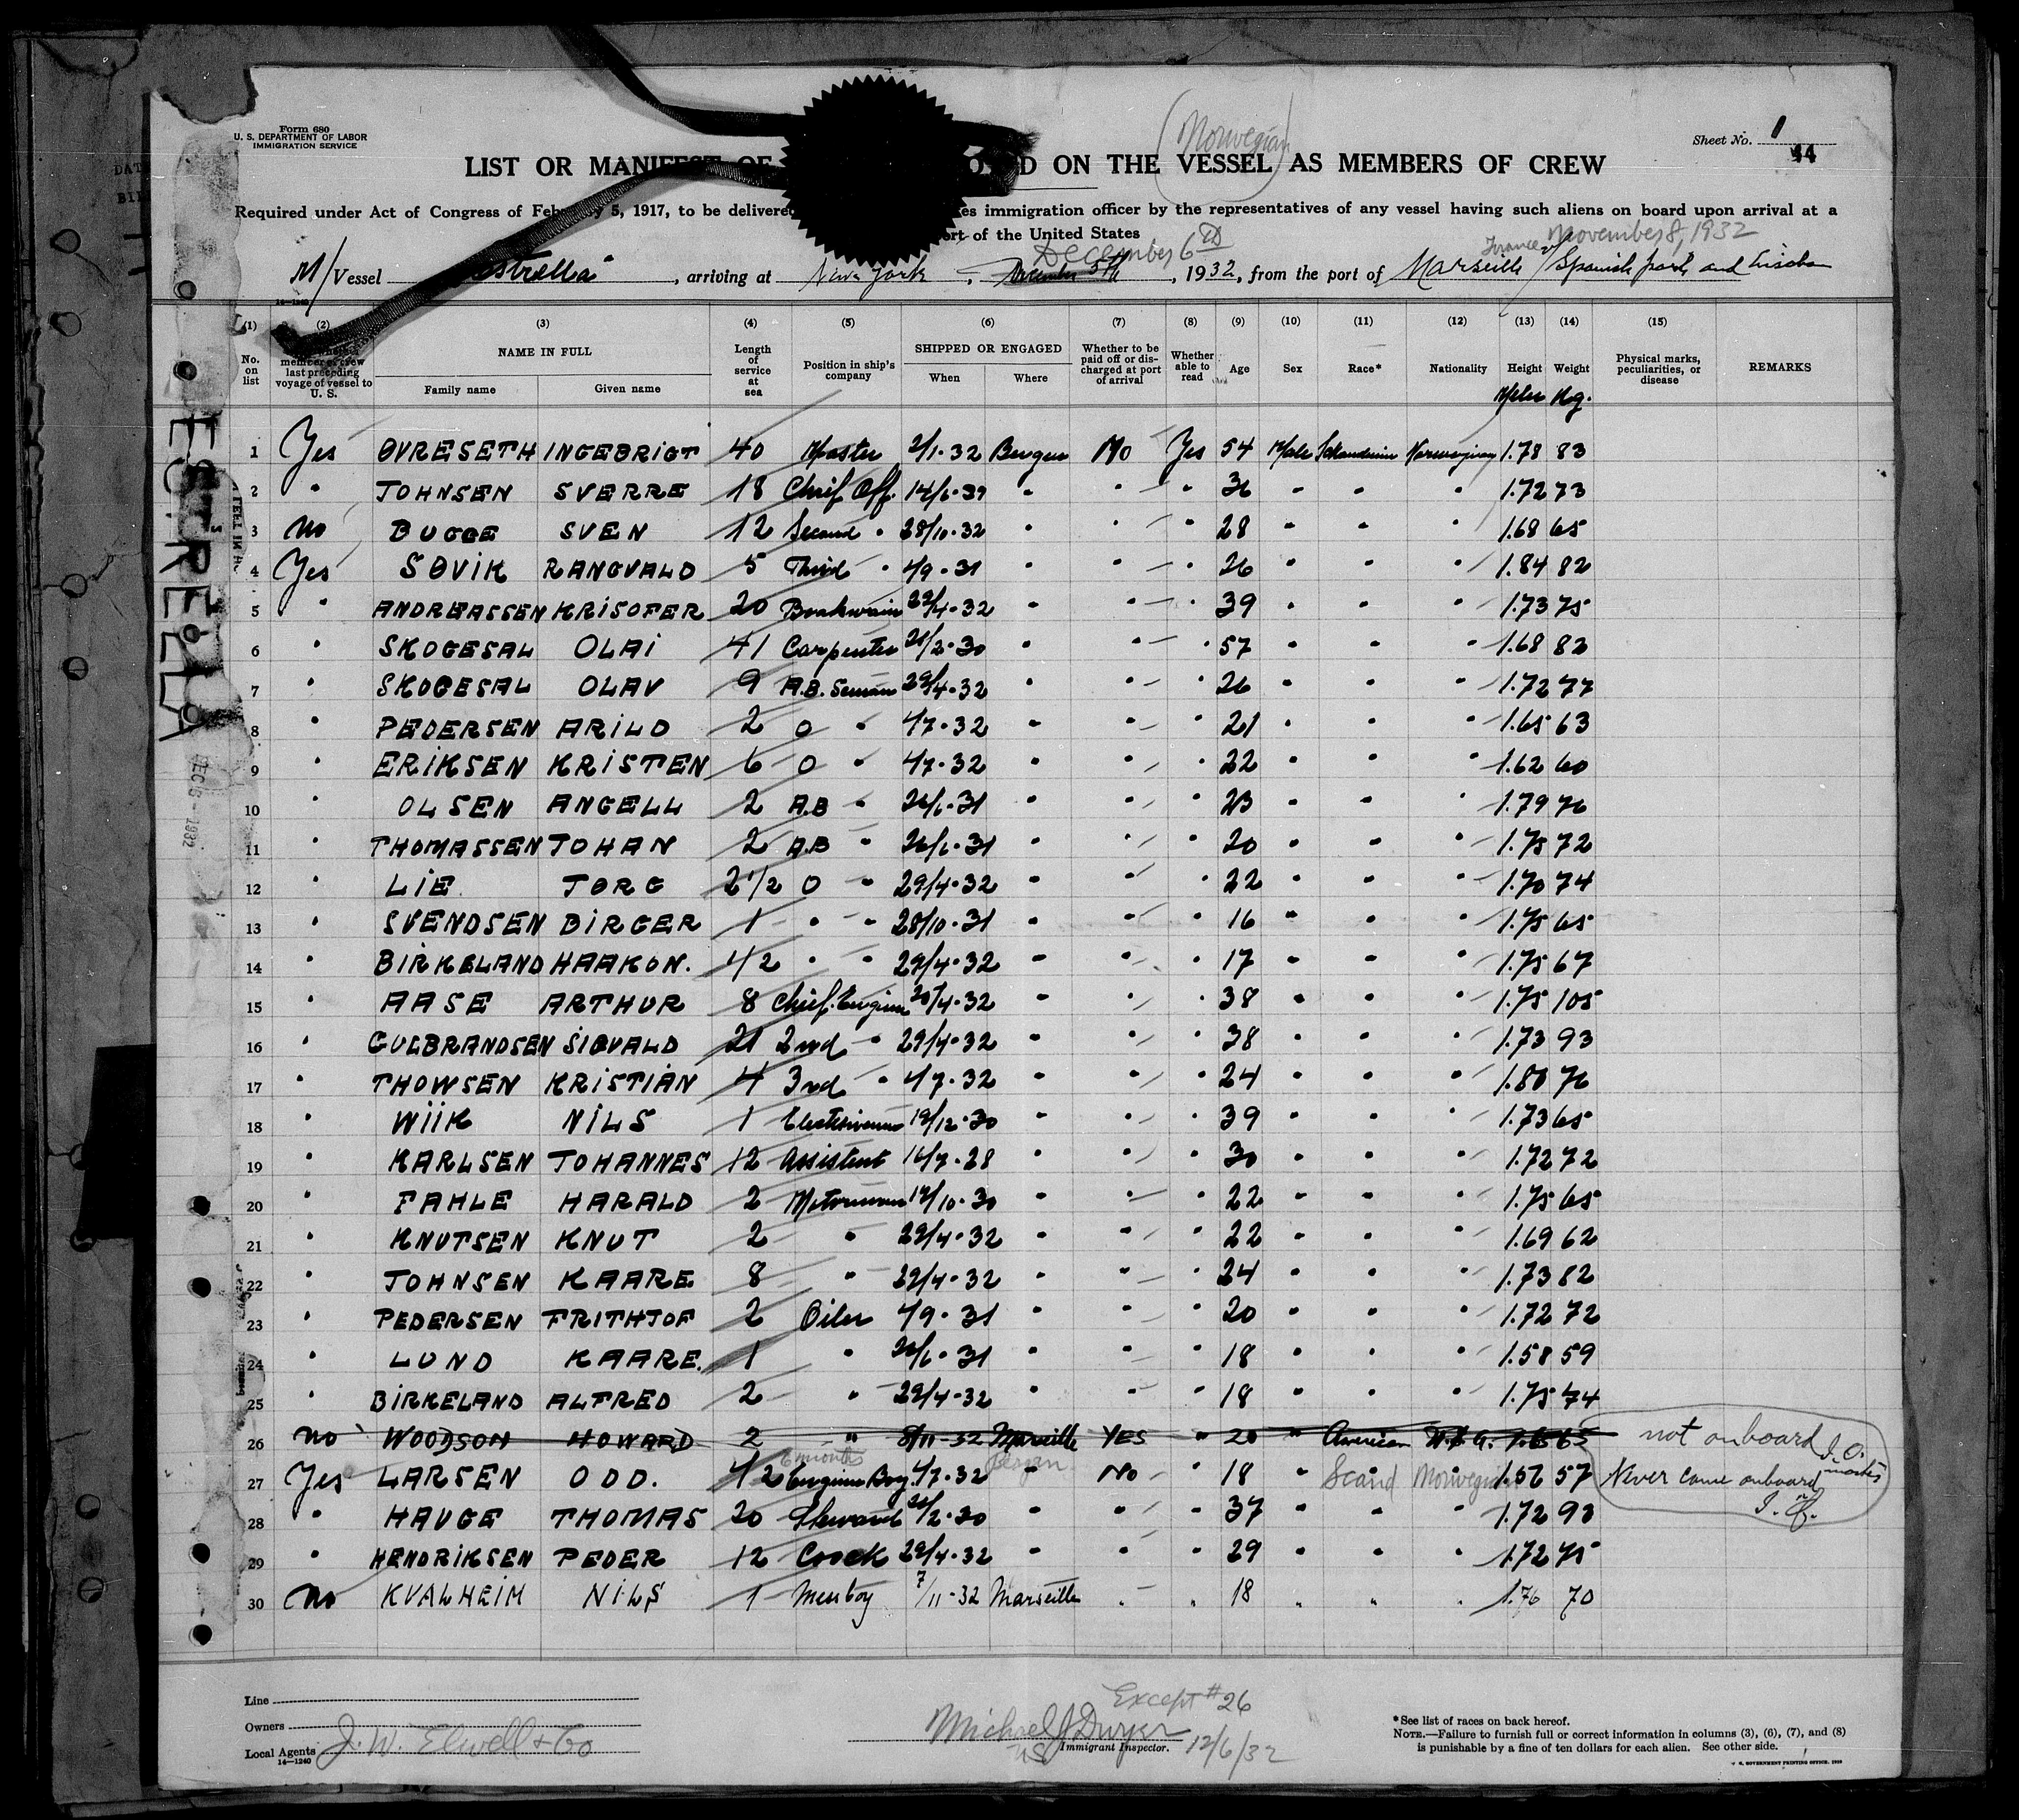 Form 680
U. S. DEPARTMENT OF LABOR
IMMIGRATION SERVICE
(Norwegian)
Sheet No. 1
44
LIST OR MANIFEST OF ON THE VESSEL AS MEMBERS OF CREW
Required under Act of Congress of February 5, 1917, to be delivered immigration officer by the representatives of any vessel having such aliens on board upon arrival at a
of the United States
December 6th
France November 8, 1932
M/Vessel Estrella, arriving at New York, December 5th, 1932, from the port of Marseille Spanish ports and Lisabon
14-1240
(1) (2) (3) (4) (5) (6) (7) (8) (9) (10) (11) (12) (13) (14) (15)
No. on list member of crew last preceding voyage of vessel to U. S. NAME IN FULL Family name Given name Length of service at sea Position in ship's company SHIPPED OR ENGAGED When Where Whether to be paid off or discharged at port of arrival Whether able to read Age Sex Race* Nationality Height Weight Physical marks, peculiarities, or disease REMARKS
Meter Kg.
1 Yes ØVRESETH INGEBRIGT 40 Master 2/1-32 Bergen No Yes 54 Male Norwegian 1.78 83
2 " JOHNSEN SVERRE 18 Chief Off. " " " 36 " " " 1.72 73
3 No BUGGE SVEN 12 Second " 28/10-32 " " " 28 " " " 1.68 65
4 Yes SØVIK RANGVALD 5 Third " 4/9-31 " " " 26 " " " 1.84 82
5 " ANDREASSEN KRISOFER 20 Boatswain 29/4-32 " " " 39 " " " 1.73 75
6 " SKOGESAL OLAI 41 Carpenter " " " 57 " " " 1.68 82
7 " SKOGESAL OLAV 9 A.B. Seman 29/4-32 " " " 26 " " " 1.72 77
8 " PEDERSEN ARILD 2 O " 4/7-32 " " " 21 " " " 1.65 63
9 " ERIKSEN KRISTEN 6 O " 4/7-32 " " " 22 " " " 1.62 60
10 " OLSEN ANGELL 2 A.B " 26/6-31 " " " 23 " " " 1.79 76
11 " THOMASSEN JOHAN 2 A.B " 26/6-31 " " " 20 " " " 1.75 72
12 " LIE JØRG 2 1/2 O " 29/4-32 " " " 22 " " " 1.70 74
13 " SVENDSEN BIRGER 1 " " 28/10-31 " " " 16 " " " 1.75 65
14 " BIRKELAND HAAKON. 1/2 " " 29/4-32 " " " 17 " " " 1.75 67
15 " AASE ARTHUR 8 Chief. Engineer 29/4-32 " " " 38 " " " 1.75 105
16 " GULBRANDSEN SIGVALD 21 2nd " 29/4-32 " " " 38 " " " 1.73 93
17 " THOWSEN KRISTIAN 4 3rd " 4/7-32 " " " 24 " " " 1.80 76
18 " WIIK NILS 1 19/12-30 " " " 39 " " " 1.73 65
19 " KARLSEN JOHANNES 12 Assistent 16/7-28 " " " 30 " " " 1.72 72
20 " FAHLE HARALD 2 Motorman 19/10-30 " " " 22 " " " 1.75 65
21 " KNUTSEN KNUT 2 " 29/4-32 " " " 22 " " " 1.69 62
22 " JOHNSEN KAARE 8 " 29/4-32 " " " 24 " " " 1.73 82
23 " PEDERSEN FRITHJOF 2 Oiler 4/9-31 " " " 20 " " " 1.72 72
24 " LUND KAARE. 1 " 26/6-31 " " " 18 " " " 1.58 59
25 " BIRKELAND ALFRED 2 " 29/4-32 " " " 18 " " " 1.75 74
26 No WOODSON HOWARD 2 " 8/11-32 Marseille YES " 20 " American U.S.A. 1.65 65 not onboard
6 months Bergen
27 Yes LARSEN ODD. 1/2 Engine Boy 4/7-32 " No " 18 " Scand Norwegian 1.56 57 Never came onboard
28 " HAUGE THOMAS 20 Steward " " " 37 " " " 1.72 93
29 " HENDRIKSEN PEDER 12 Coock 29/4-32 " " " 29 " " " 1.72 75
30 No KVALHEIM NILS 1 Messboy 7/11-32 Marseille " " 18 " " " 1.76 70
ESTRELLA
DEC 6 - 1932
Line
Owners
Local Agents J. W. Elwell & Co
14-1240
Except #26
Michael J Dwyer
US Immigrant Inspector. 12/6/32
*See list of races on back hereof.
NOTE.—Failure to furnish full or correct information in columns (3), (6), (7), and (8)
is punishable by a fine of ten dollars for each alien. See other side.
U. S. GOVERNMENT PRINTING OFFICE.